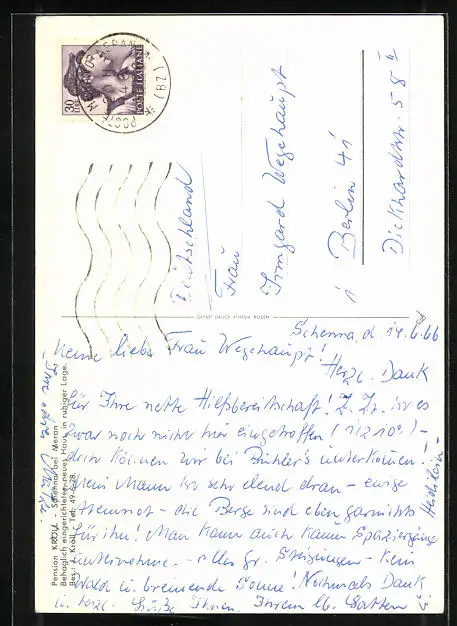 30 LIRE
POSTE ITALIANE
MERANO
(BZ)
Deutschland
Frau
Irmgard Wegehaupt
1 Berlin 41
Dickhardtstr. 58 I
Schenna, d 14.6.66
Meine liebe Frau Wegehaupt!
Herzl. Dank
für Ihre nette Hilfsbereitschaft! Z. Zt. ist es
zwar noch nicht hier eingetroffen
doch können wir bei Bühler's unterkommen!
Mein Mann ist sehr elend dran - ewige
Atemnot - die Berge sind eben garnichts
für ihn! Man kann auch kaum Spaziergänge
unternehmen - alles gr. Steigungen - kein
Wald u. brennende Sonne! Nochmals Dank
u. herzl. Grüße Ihnen, Ihrem lb. Gatten
Pension KROLL - Schenna bei Meran
Behaglich eingerichtetes neues Haus in ruhiger Lage.
Bes.: J. Kröll - Tel.